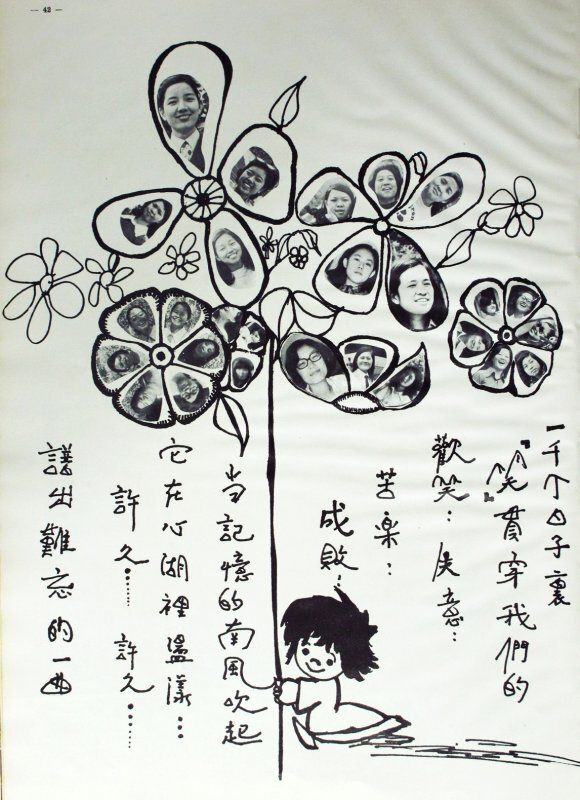 — 42 —
一千个日子裏
"笑"貫穿我們的
歡笑：失意：
苦楽：
成敗：
当記憶的南風吹起
它在心湖裡盪漾…
許久…… 許久……
譜出難忘的一曲